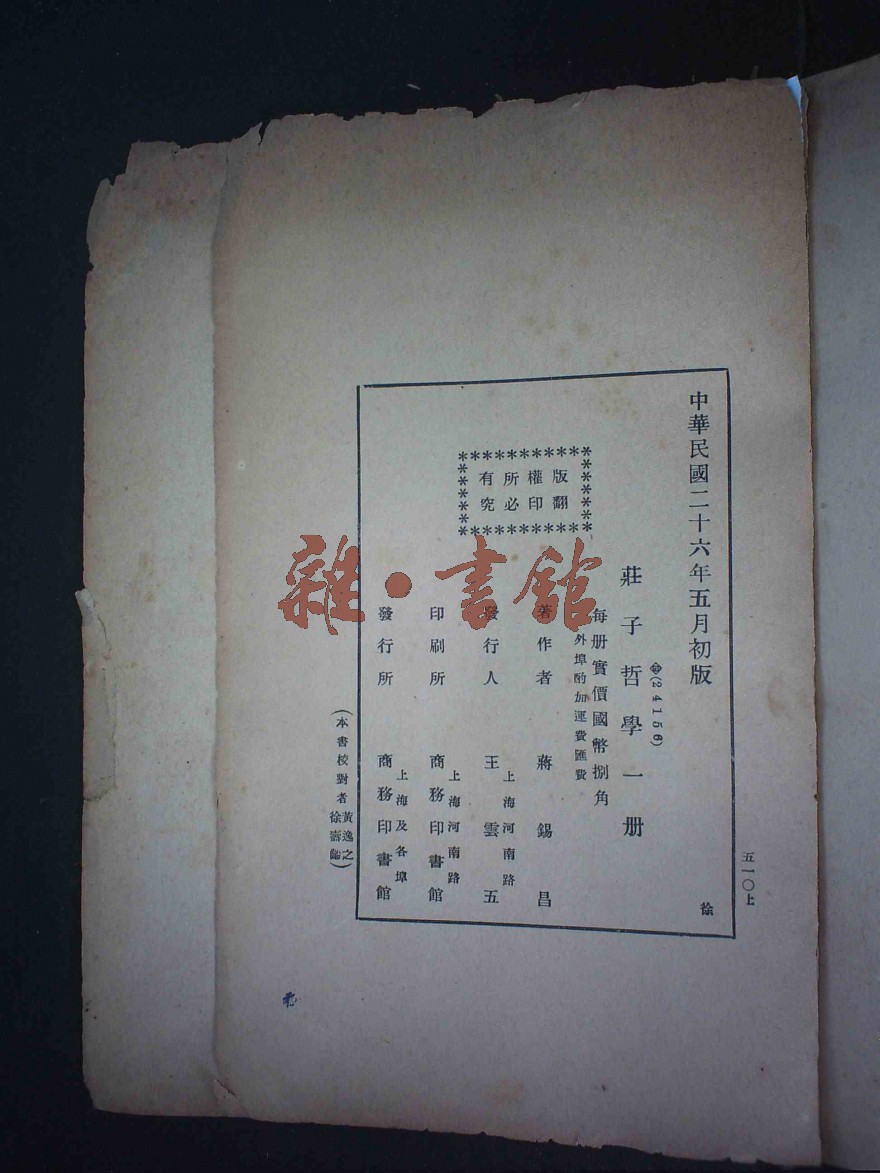 五一〇上
中華民國二十六年五月初版
徐
(24156)
莊子哲學一册
每册實價國幣捌角
外埠酌加運費匯費
版權所有
翻印必究
著作者 蔣錫昌
發行人 王雲五
上海河南路
印刷所 商務印書館
上海河南路
發行所 商務印書館
上海及各埠
(本書校對者 黃逸之
徐壽齡)
雜·書館